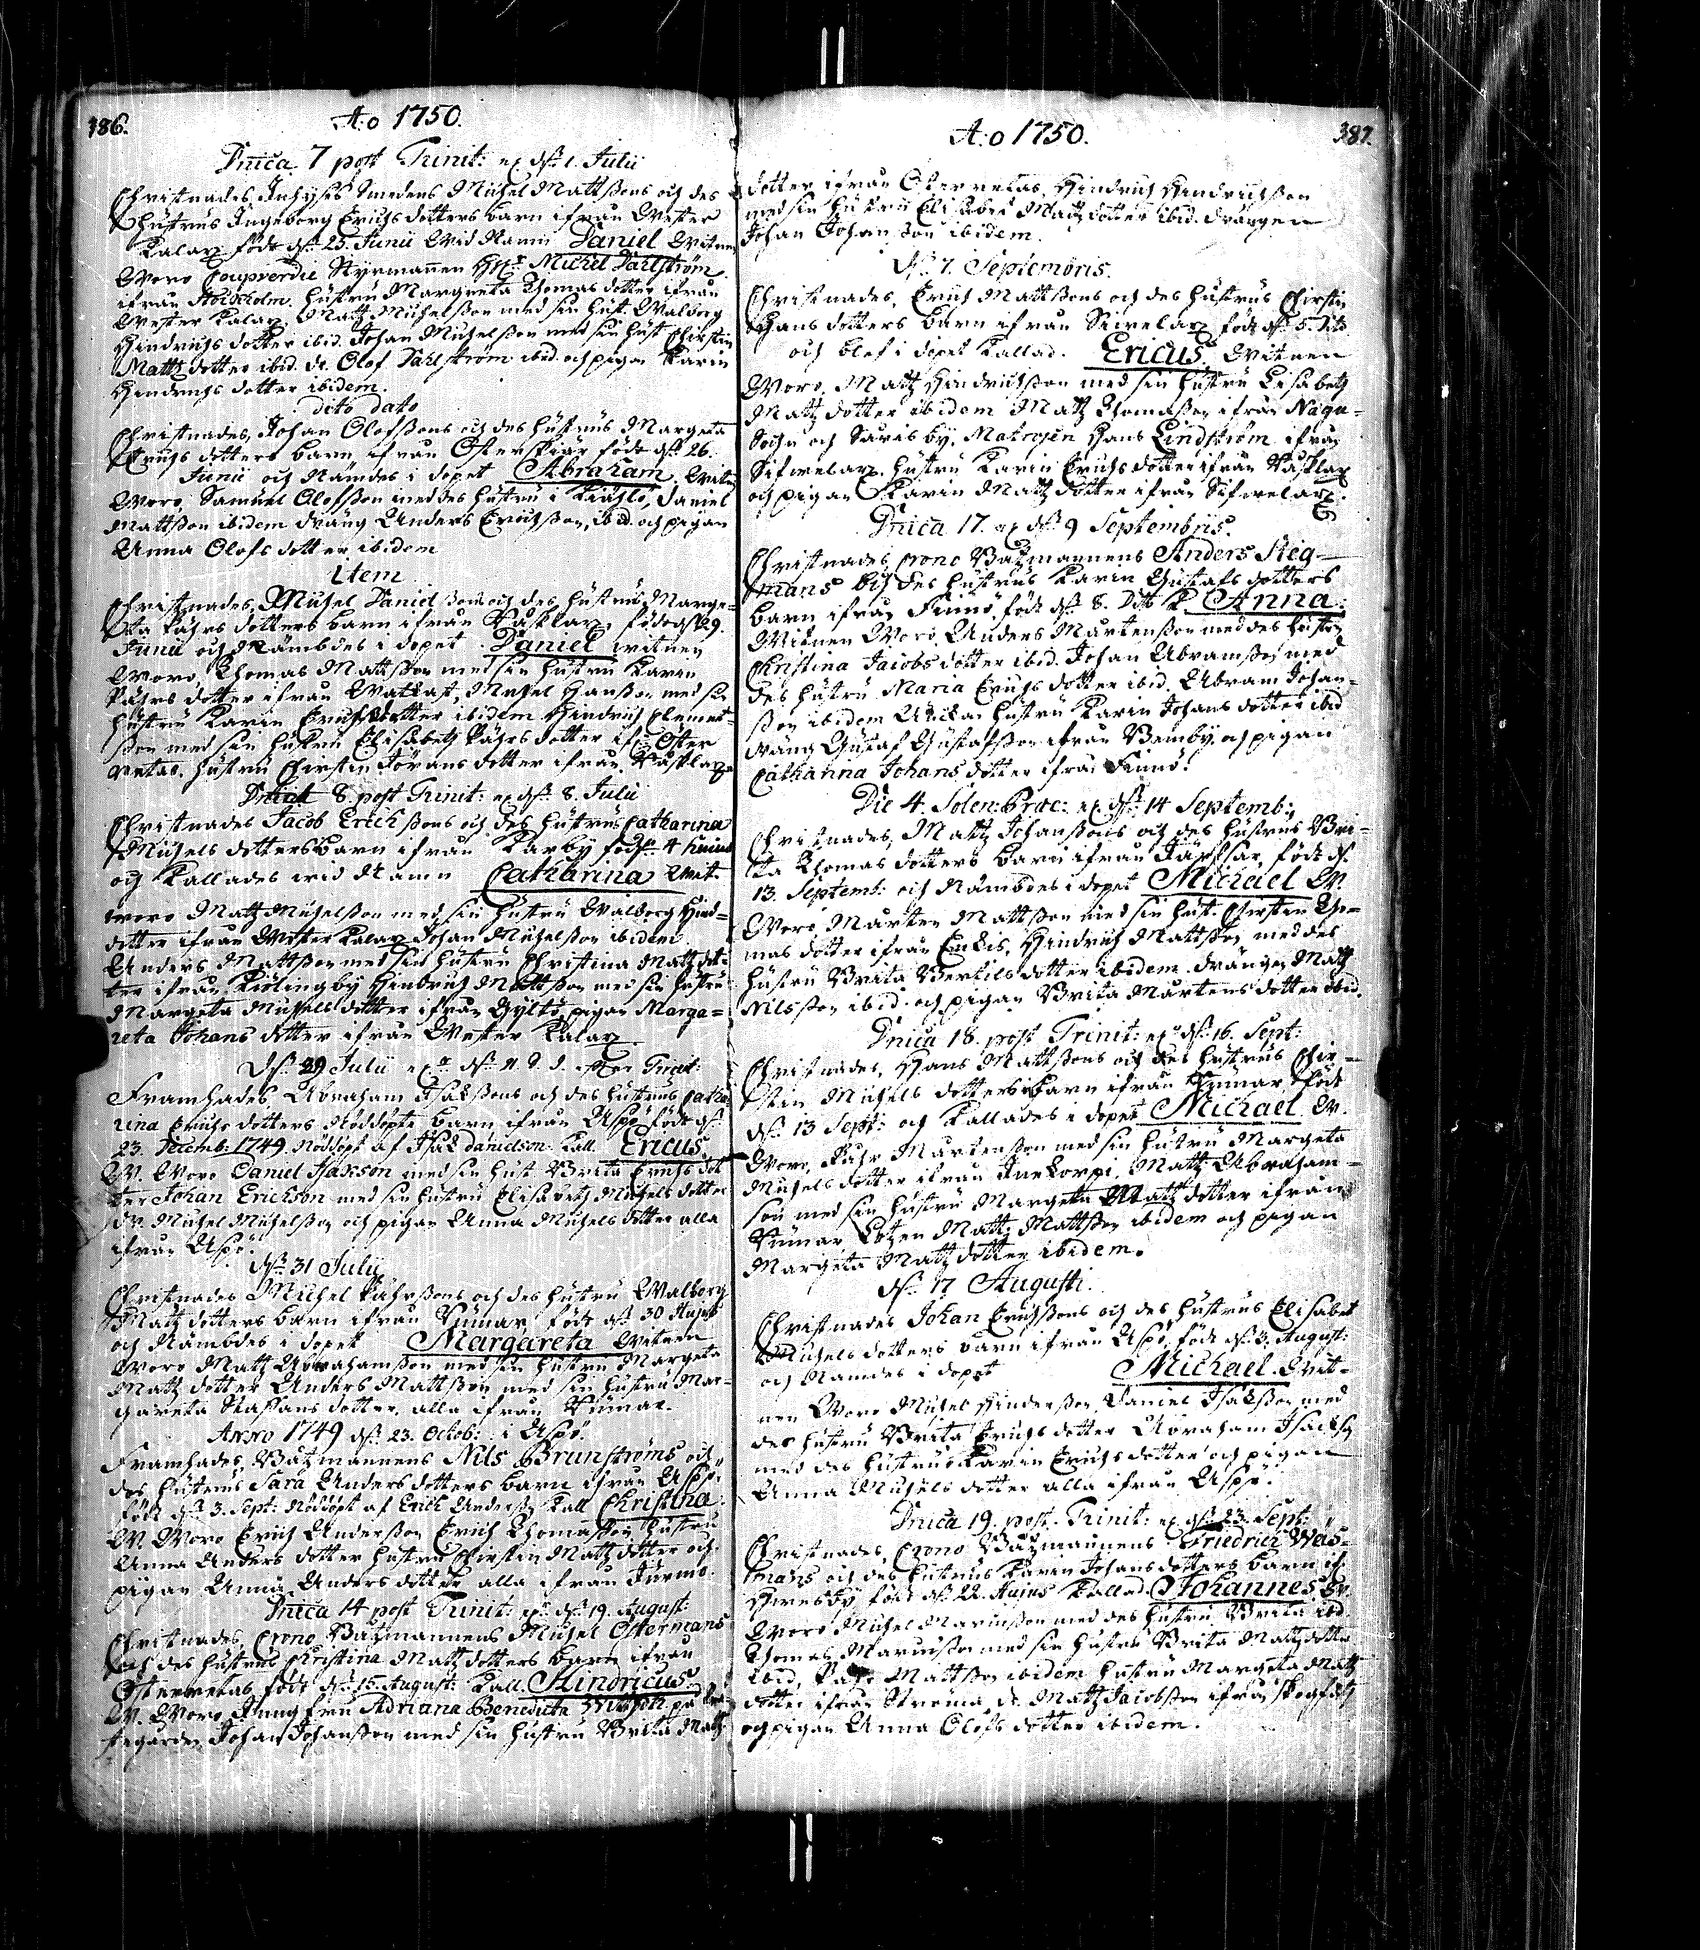 386.
A:o 1750.
Dnica 7 post Trinit: eller d. 1. Julii
Christnades, Inhyses Smedens Michel Mattssons och des
hustrus Ingeborg Erichs dotters barn ifrån Wester
Kalax födt d. 25. Junii wid Namn Daniel Witnen
Woro Coupverdie Styrmannen Michel Dahlström
ifrån Stockholm. hustru Margreta Thomas dotter ifrån
Wester Kalax Matz Michelsson med sin hust. Walborg
Hindrichs dotter ibid. Johan Michelsson med sin hust Chirstin
Matz dotter ibid. dr. Olof Dahlström ibid. och pigan Karin
Hindrichs dotter ibidem.
dito dato
Christnades, Johan Olofssons och des hustrus Margeta
Erichs dotters barn ifrån Österskiär födt d. 26.
Junii och Nämdes i dopet Abraham. Witn
Woro Samuel Olofsson med des hustru i Kiäslö, Daniel
Mattsson ibidem dräng Anders Erichsson, ibid. och pigan
Anna Olofs dotter ibidem
Item
Christnades, Michel Danielssons och des hustrus Marge-
ta Påhrs dotters barn ifrån Wäsklax, föddes d. 29.
Junii och Nämbdes i dopet Daniel witnen
Woro, Thomas Mattsson med sin hustru Karin
Påhrs dotter ifrån Watkast, Michel Hansson med sin
hustru Karin Erichs dotter ibidem Hindrich Clemet-
sson med sin hustru Elisabetz Påhrs dotter ifr. Öster
retas. hustru Chirstin Jörans dotter ifrån Wäsklax
Dnica 8. post Trinit: d. 8. Julii
Christnades Jacob Erichssons och des hustrus Catharina
Michels dotters barn ifrån Karby föd d. 4 huius
och Kallades wid Namn Catharina Wit.
woro Matz Michelsson med sin hustru Walborg Hind-
dotter ifrån Wester Kalax Johan Michelsson ibidem
Anders Mattsson med sin hustru Christina Matz dot-
ter ifrån Kiölingby Hindrich Mattsson med sin hustru
Margeta Michels dotter ifrån Gyltö, pigan Marga-
reta Johans dotter ifrån Wester Kalax
D. 29 Julii d. 11 efter Trinit:
Framhades Abraham Isakssons och des hustrus Catha
rina Erichs dotters Nöddöpte barn ifrån Aspö födt d.
23. Decemb: 1749. Nöddöpt af Isak Danielson. Kall. Ericus.
W. Woro Daniel Isakson med sin hust Brita Erichs dot
ter Johan Erichson med sin hustru Elisabetz Michels dotter
dr. Michel Michelsson och pigan Anna Michels dotter alla
ifrån Aspö.
d. 31 Julii
Christnades Michel Påhrssons och des hustru Walborg
Matz dotters barn ifrån Kumar födt d. 30 Hujus
och Nämbdes i dopet Margareta witnen
Woro Matz Abrahamsson med sin hustru Margeta
Matz dotter Anders Mattsson med sin hustru Mar-
gareta Staffans dotter, alla ifrån Kumar.
Anno 1749 d. 23. Octob: i Aspö.
Framhades, Båtzmannens Nils Brunströms och
des hustrus Sara Anders dotters barn ifrån Aspö.
födt d. 3. Sept: Nöddöpt af Erich Anderss. Kall Christina.
W. Woro Erich Andersson Erich Thomasson hustru
Anna Anders dotter hustru Chirstin Matz dotter och
pigan Anna Anders dotter alla ifrån Jurmo.
Dnica 14 post Trinit: d. 19. August:
Christnades, Crono Båtzmannens Michel Ostermans
och des hustrus Christina Matz dotters barn ifrån
Österretas födt d. 15. August: Kall. Hindricus.
W. Woro Jungfru Adriana Beneducta på
tegården, Johan Johansson med sin hustru Brita Matz
A:o 1750.
387.
dotter ifrån Österretas, Hindrich Hindrichsson
med sin hustru Elisabet Matz dotter ibid. drängen
Johan Johansson ibidem.
d. 7. Septembris.
Christnades, Erich Mattssons och des hustrus Chirstin
Hans dotters barn ifrån Siwelax födt d. 5. Dito
och blef i dopet kallad. Ericus. Witnen
Woro, Matz Hindrichsson med sin hustru Lisabetz
Matz dotter ibidem Matz Thomasson ifrån Nagu-
Sochn och Sarisby. Matrosen Hans Lindström ifrån
Sifwelax. hustru Karin Erichs dotter ifrån Wäsklax
och pigan Karin Matz dotter ifrån Sifwelax.
Dnica 17. d. 9 Septembris.
Christnades, Crono Båtzmannens Anders Steg-
mans och des hustrus Karin Gustafs dotters
barn ifrån Finnö, födt d. 8. Dito K. Anna.
Witnen Woro, Anders Mårtensson med des hustru
Christina Jacobs dotter ibid. Johan Abramsson med
des hustru Maria Erichs dotter ibid. Abram Johan-
sson ibidem Änkan hustru Karin Johans dotter ibid
dräng Gustaf Gustafsson ifrån Benby. och pigan
Catharina Johans dotter ifrån Finnö.
Die 4. Solen: Præc: d. 14 Septemb:
Christnades, Matz Johanssons och des hustrus Bri-
ta Thomas dotters barn ifrån Järfsar, födt d.
13. Septemb: och Nämbdes i dopet Michael W.
Woro, Mårten Mattsson med sin hust. Chirstin Tho-
mas dotter ifrån Enkis, Hindrich Mattsson med des
hustru Brita Bertils dotter ibidem. drängen Matz
Nilsson ibid. och pigan Brita Mårtens dotter ibid.
Dnica 18. post Trinit: d. 16. Sept:
Christnades, Hans Mattssons och des hustrus Chir-
stin Michels dotters barn ifrån Kumar, födt
d. 13 Sept: och Kallades i dopet Michael. W.
Woro, Påhr Mårtensson med sin hustru Margeta
Michels dotter ifrån Marskorpi, Matz Abraham-
son med sin hustru Margeta Matz dotter ifrån
Kumar Matz Mattsson ibidem och pigan
Margeta Matz dotter ibidem.
d. 17 Augusti.
Christnades Johan Erichssons och des hustrus Elisabet
Michels dotters barn ifrån Aspö, födt d. 3. August:
och Namdes i dopet Michael. Wit-
nen Woro Michel Hindersson, Daniel Isaksson med
des hustru Brita Erichs dotter Abraham Isacksson
med des hustru Karin Erichs dotter och pigan
Anna Michels dotter alla ifrån Aspö.
Dnica 19. post. Trinit: d. 23. Sept:
Christnades, Crono Båtzmannens Friedrich Was-
mans och des hustrus Karin Johans dotters barn if.
Hwesby födt d. 22. Hujus Kallad. Johannes. W.
Woro Michel Marcusson med des hustru Brita ibd.
Thomas Marcusson med sin hustru Brita Matz dotter
ibid, Påhr Mattsson ibidem hustru Margeta Matz
dotter ifrån Ströma, dr. Matz Jacobsson ifrån
och pigan Anna Olofs dotter ibidem.